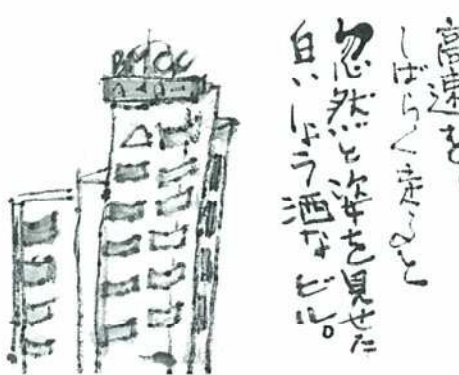 高速を
しばらく走ると
忽然と姿を見せた
白いしょう洒なビル。